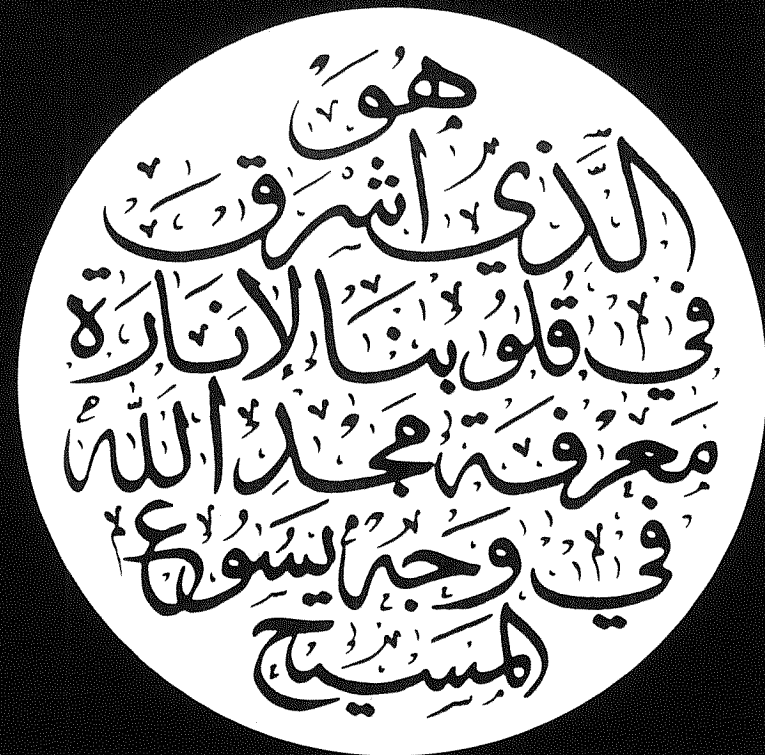 هُوَ
الَّذِي اشْرَقَ
فِي قُلُوبِنَا لِإنَارَةِ
مَعْرِفَةِ مَجْدِ اللّٰهِ
فِي وَجْهِ يَسُوعَ
المَسِيحِ